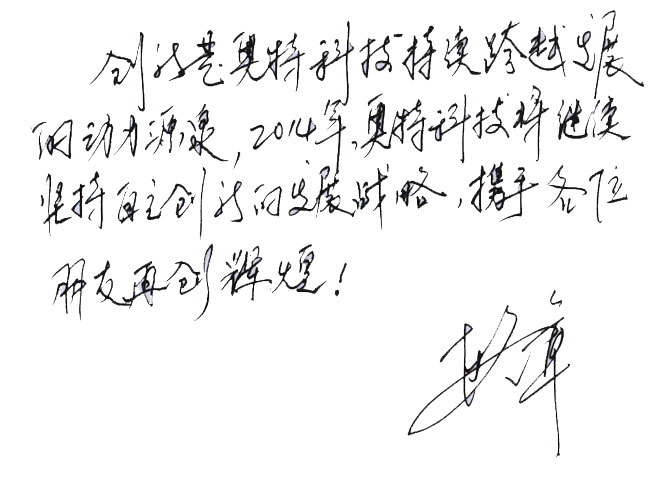 创新是奥特科技持续跨越发展
的动力源泉,2014年,奥特科技将继续
坚持自主创新的发展战略,携手各位
朋友再创辉煌!